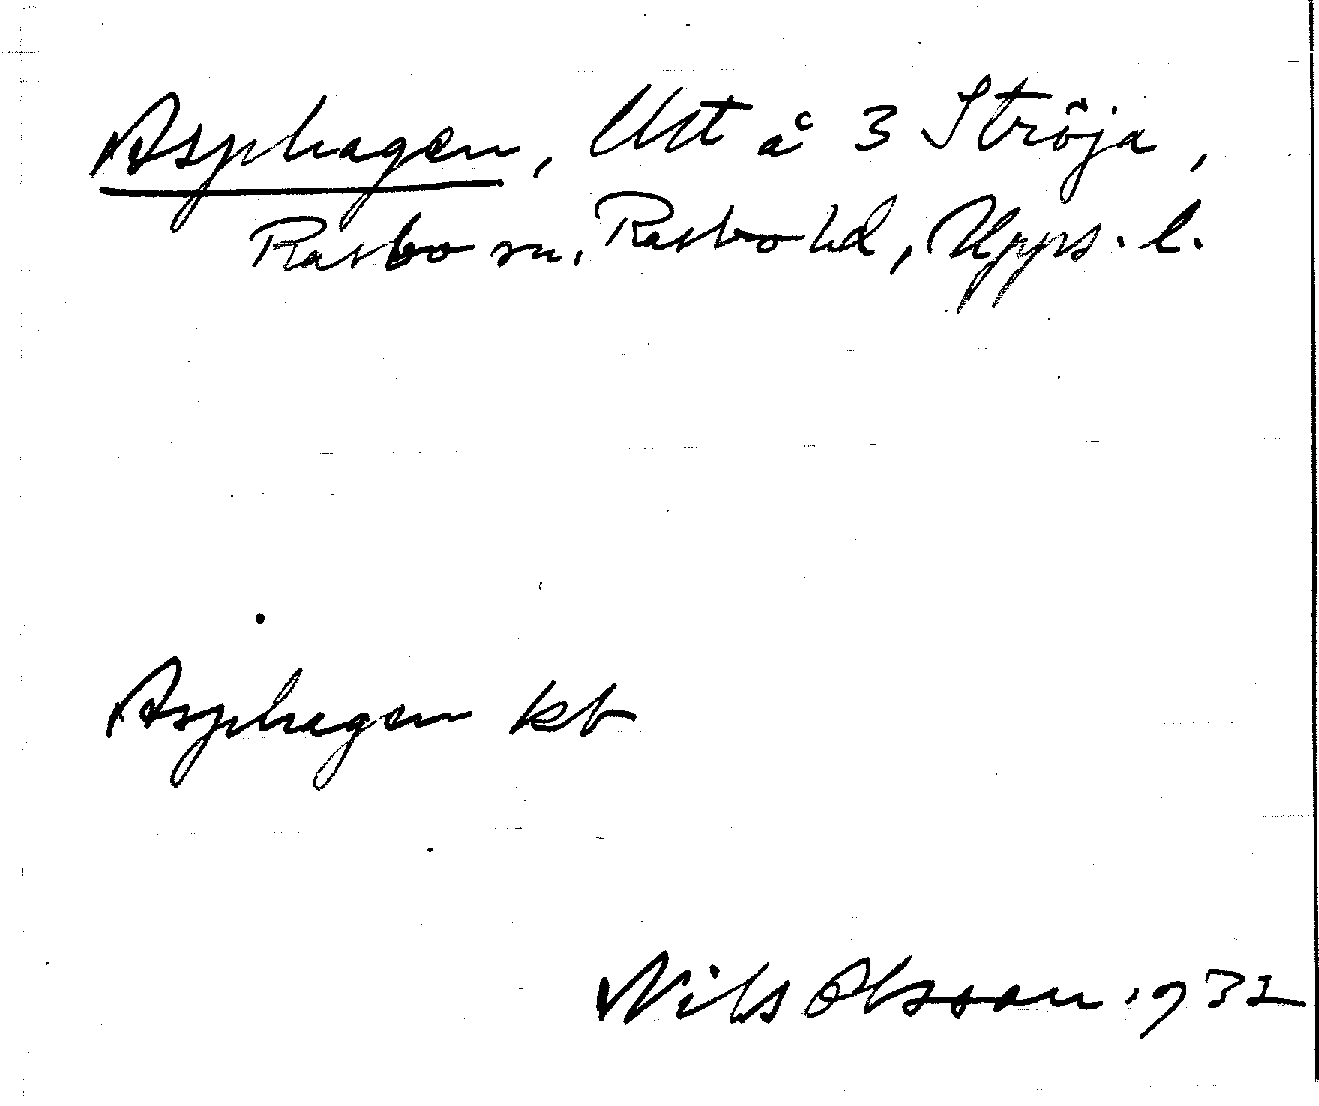 Asphagen, Utt å 3 Ströja,
Rasbo sn. Rasbo hd, Upps. l.
Asphagen kb
Nils Olsson 1932